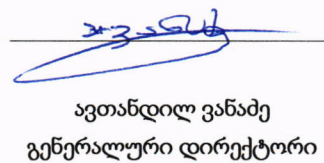 ავთანდილ ვანაძე
გენერალური დირექტორი